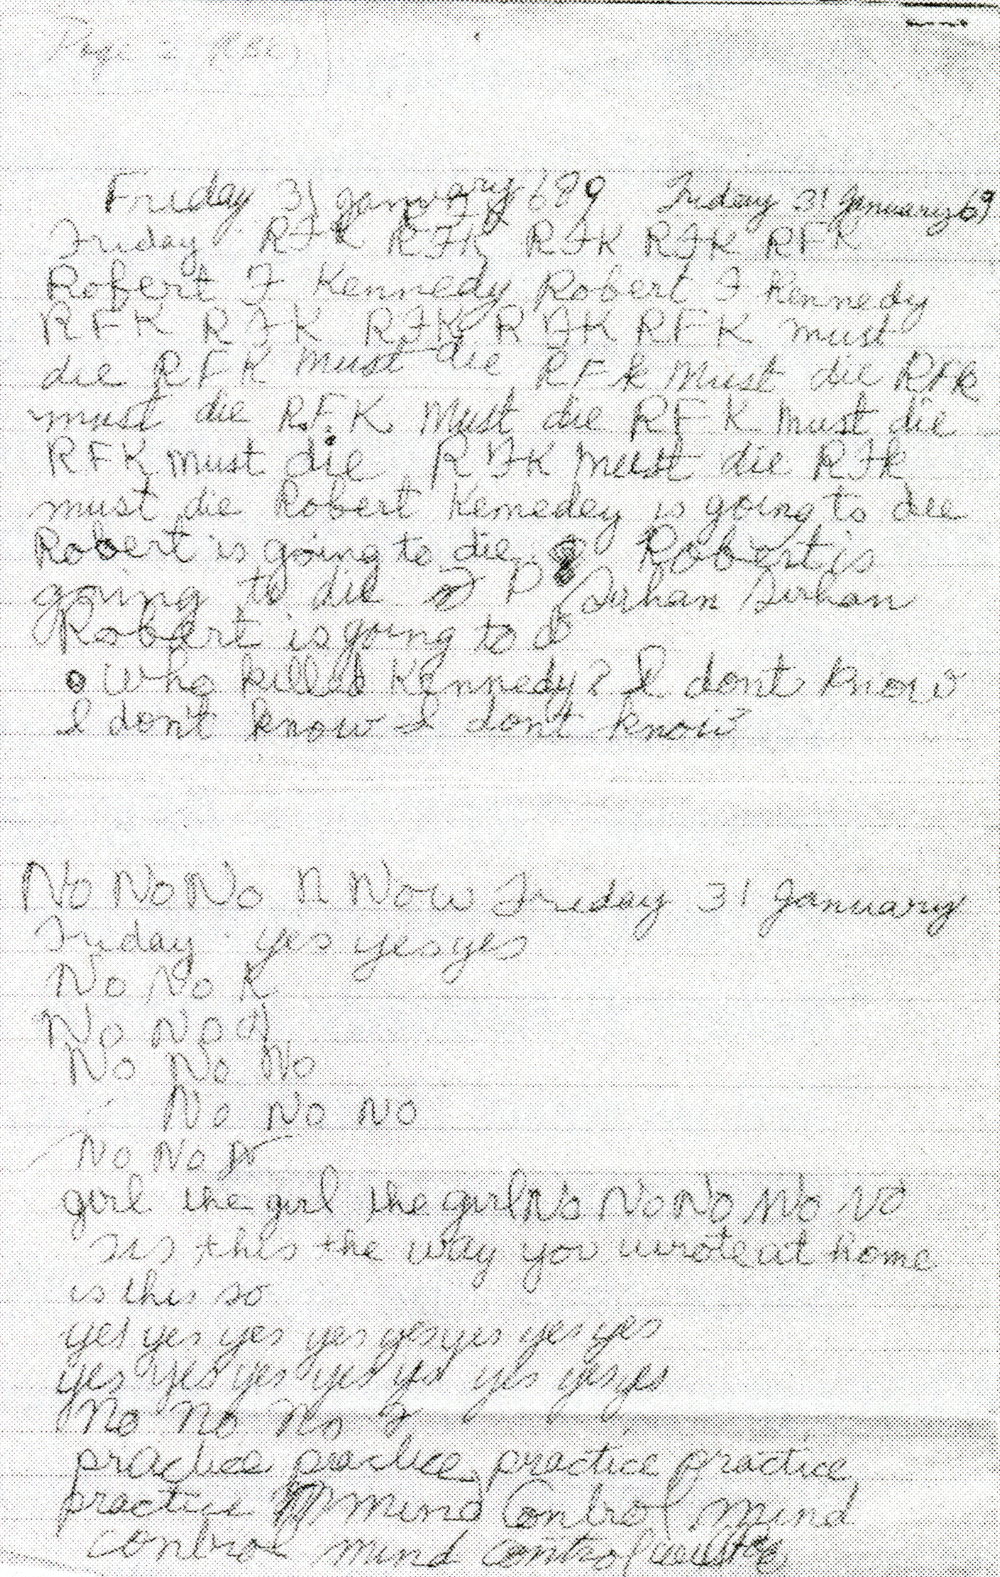 Page 2
Friday 31 January 689 Friday 31 January 69
Friday RFK RFK RFK RFK RFK
Robert F Kennedy Robert F Kennedy
RFK RFK RFK RFK RFK must
die RFK must die RFK must die RFK
must die R.F.K. Must die RFK must die
RFK must die RFK must die RFK
must die Robert Kemedey is going to die
Robert is going to die Robert is
going to die P Sirhan Sirhan
Robert is going to d
Who killed Kennedy? I dont know
I don't know I don't know
No No No n Now Friday 31 January
Friday yes yes yes
No No K
No No
No No No
No No No
No No
girl the girl the girl No No No No No
is this the way you wrote at home
is this so
yes yes yes yes yes yes yes yes
yes yes yes yes yes yes yes yes
No no no
practice practice, practice practice
practice mind Control mind
control mind control